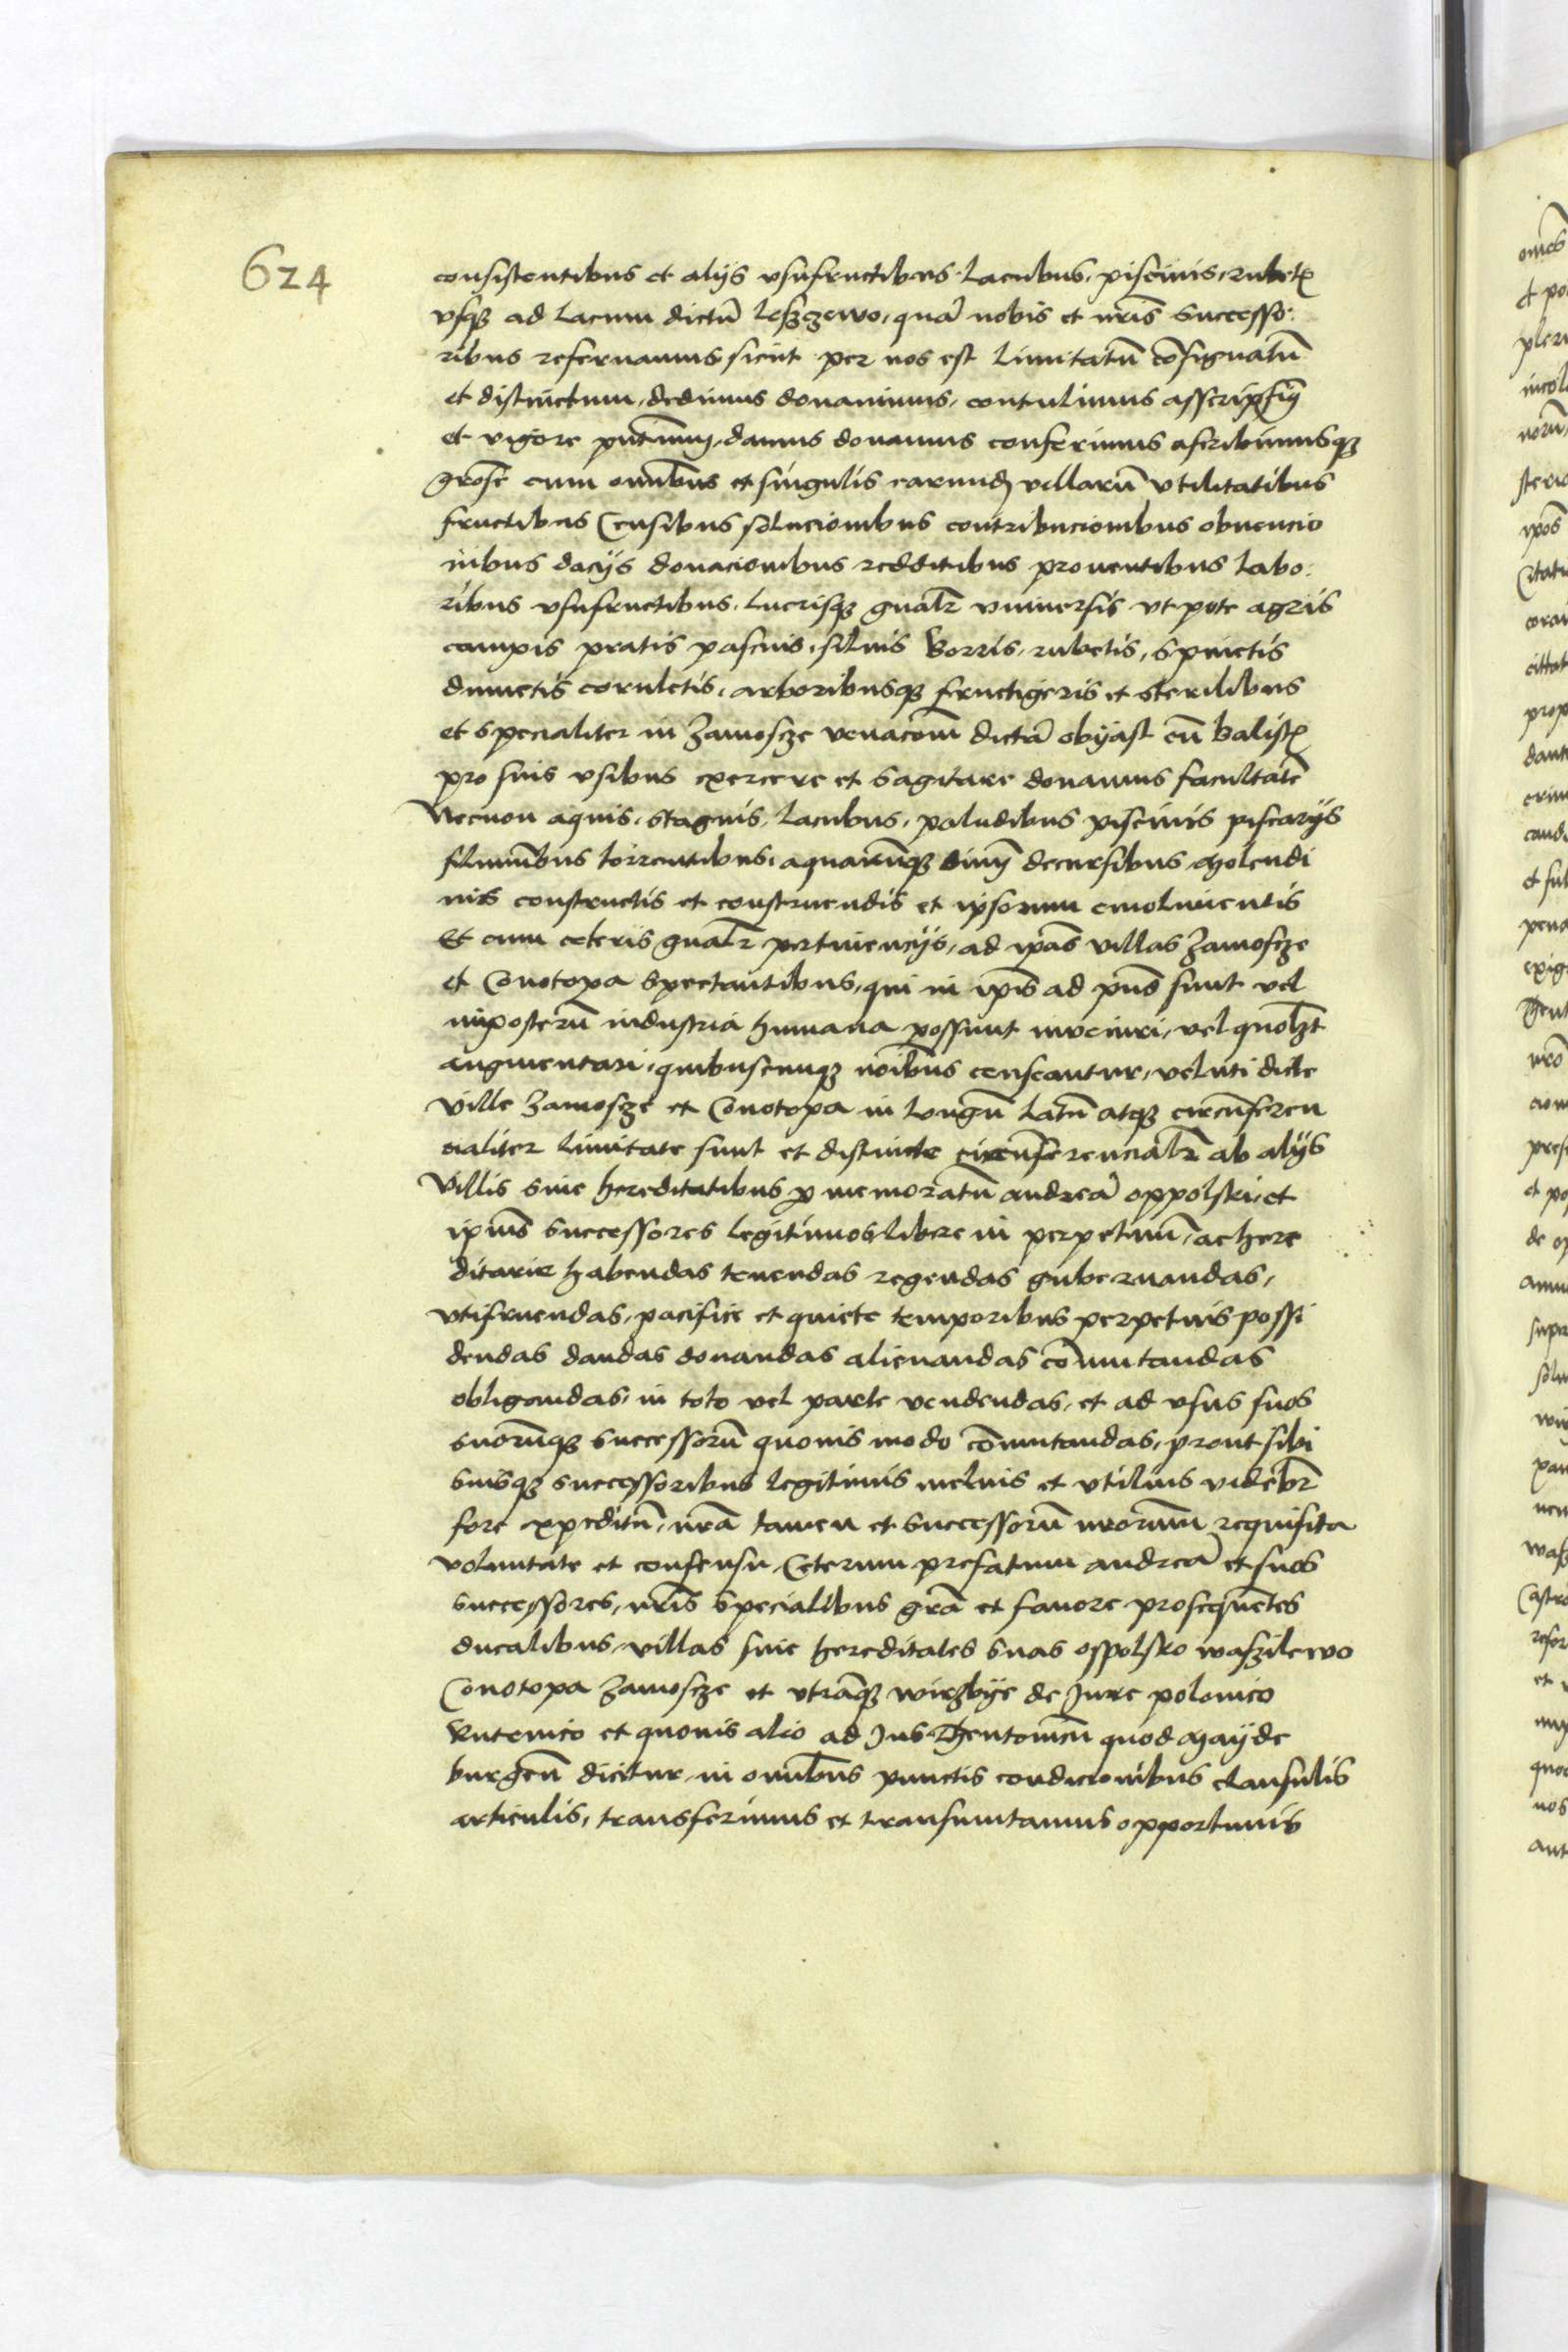 624
consistentibus et alijs vsufructibus lacubus, piscinis, rubet
vsqꝫ ad lacum dictū Leszczewo, quā nobis et nr̄is Successo:
ribus reseruamus sicut per nos est limitatū cōsignatū
et distinctum, dedimus donauimus, contulimus asscripsim̄
et vigore pn̄tium, damus donamus conferimus ascribimusqꝫ
gr̄ose cum om̄ibus et singulis earundē villarū vtilitatibus
fructibus Censibus solucionibus contribucionibus obuencio
nibus dacijs donacionibus redditibus prouentibus labo:
ribus vsufructibus, lucrisqꝫ gn̄alr vniuersis vt pote agris
campis pratis pascuis, siluis Borris, rubetis, Spinetis
dumetis coruletis, arboribusqꝫ fructigeris et sterilibus
et specialiter in Zamoscze venacōem dictā obijast cū balist
pro suis vsibus exercere et sagitare donamus facultatē
Necnon aquis, stagnis, lacubus, paludibus piscinis piscarijs
fluminibus torrentibus, aquarūqꝫ decursibus Molendi
nis constructis et construendis et ipsorum emolimentis
Et cum ceteris gn̄alr pertinencijs, ad ip̄as villas Zamoscze
et Conotopa spectantibus, qui in ip̄is ad pn̄s sunt vel
inposterū industria humana possunt inueniri, vel quol̄ꝫt
augmentari, quibuscunqꝫ noi̅bus censeantur, veluti dicte
ville Zamoscze et Conotopa in longū latū atqꝫ circūferen
cialiter limitate sunt et distincte circūferencialr ab alijs
Villis siue hereditatibus ꝑ memoratū andreā oppolski, et
ipius successores legitimos, libere in perpetuū, ac here
ditarie habendas tenendas regendas gubernandas,
vtifruendas, pacifice et quiete temporibus perpetuis possi
dendas dandas donandas alienandas cōmutandas
obligandas, in toto vel parte vendendas, et ad vsus suos
suorūqꝫ successorū quouis modo cōmutandas, prout sibi
suisqꝫ successoribus legitimis melius et vtilius videbr̄
fore expeditū, nrā tamen et successorū nrōrum requisita
voluntate et consensu, Ceterum prefatum andreā et suos
successores, nr̄is specialibus grā et fauore prosequētes
ducalibus, villas siue hereditates suas ospolsko waszilewo
Conotopa Zamoscze et vtrāqꝫ wirzbije de Jure polonico
Rutenico et quouis alio ad Jus Theutonicū quod Mayde
burgen̄ dicitur, in om̄ibus punctis condicionibus clausulis
articulis, transferimus et transmutamus opportunis